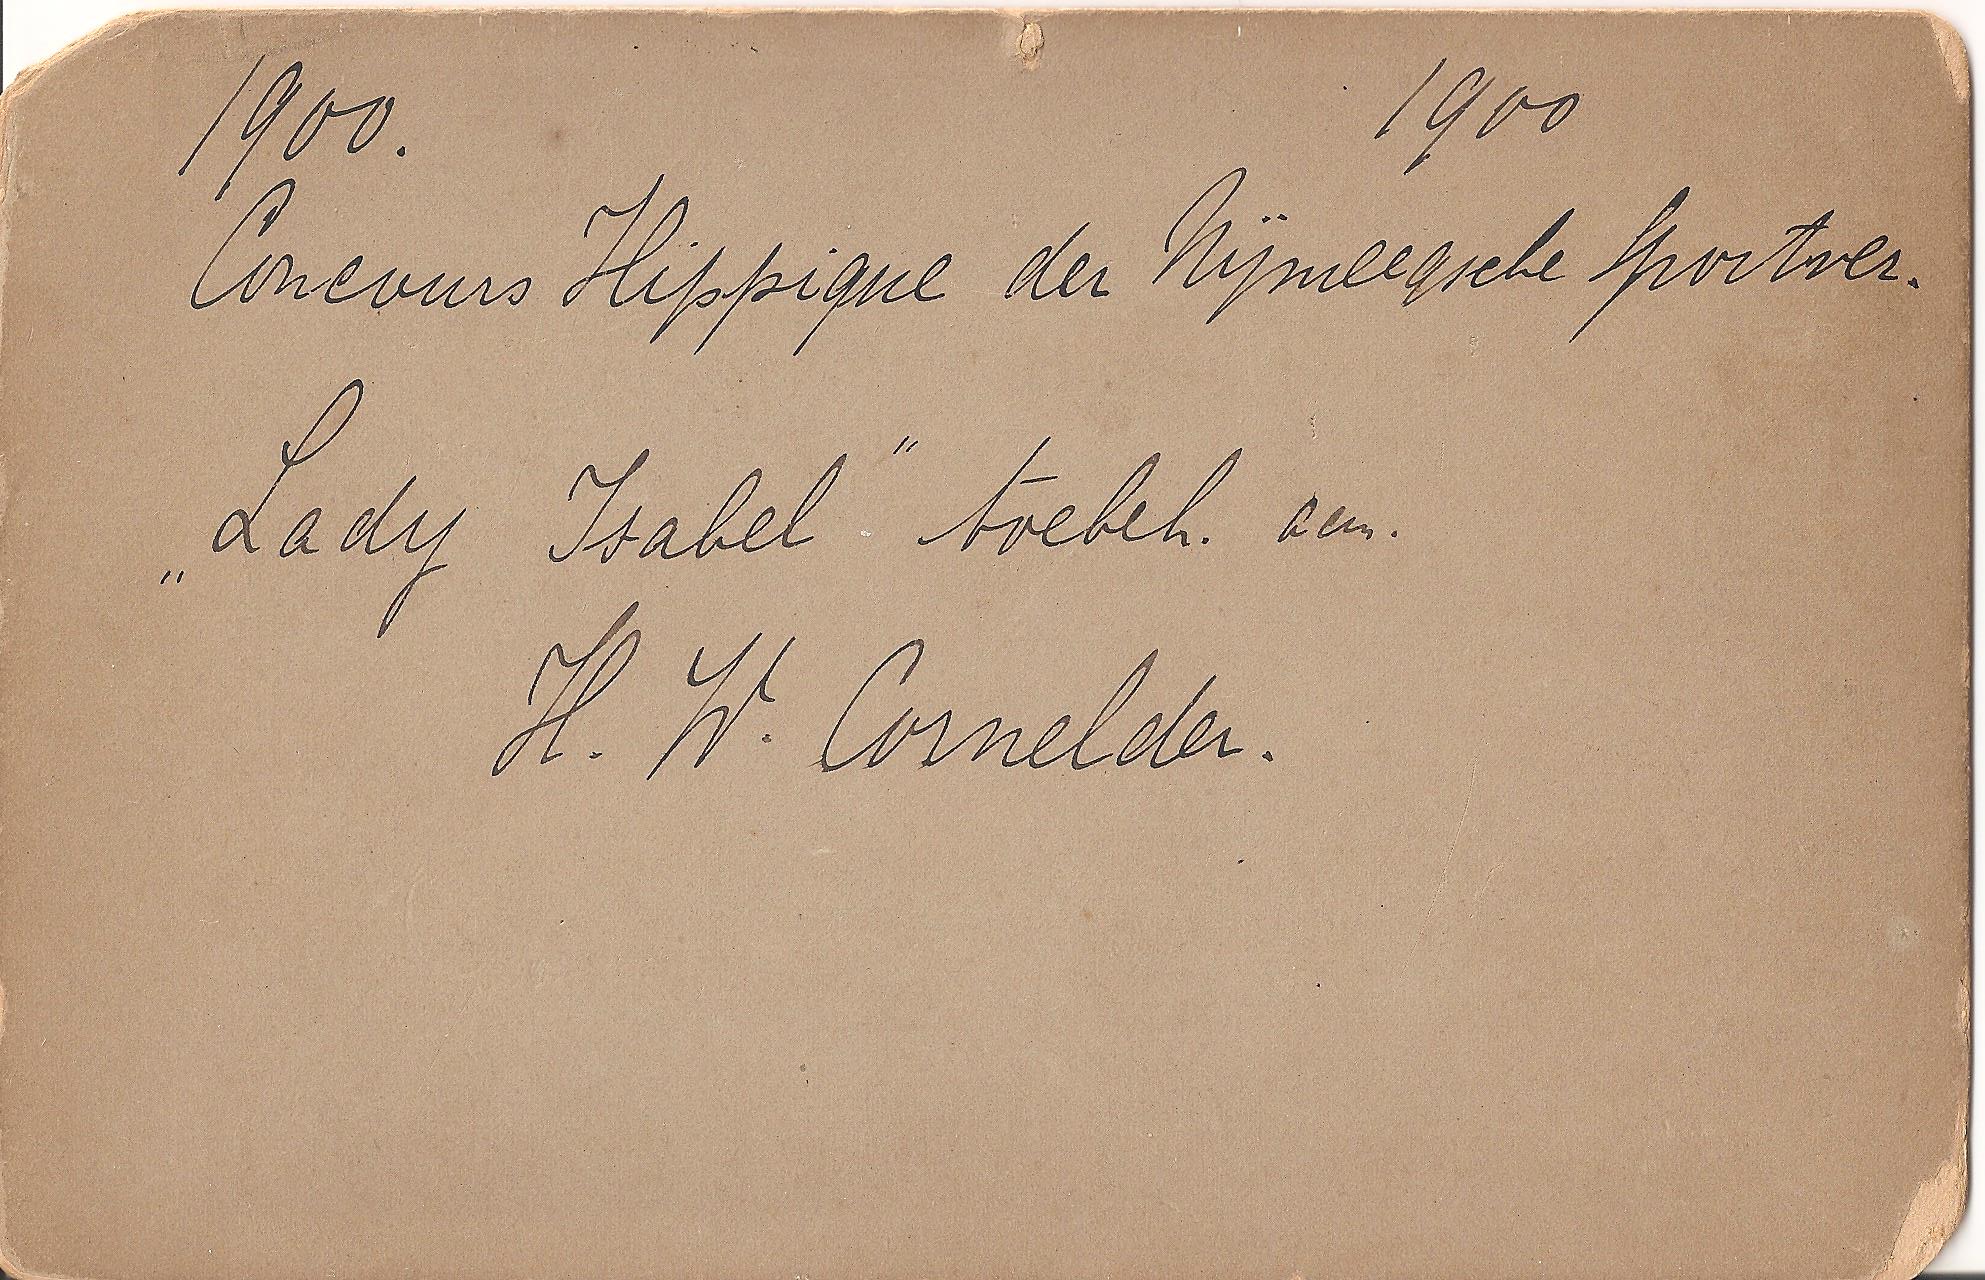 1900. 1900
Concours Hippique der Nijmeegsche Sportver.
„Lady Isabel" toebeh. aan.
H. W. Cornelder.